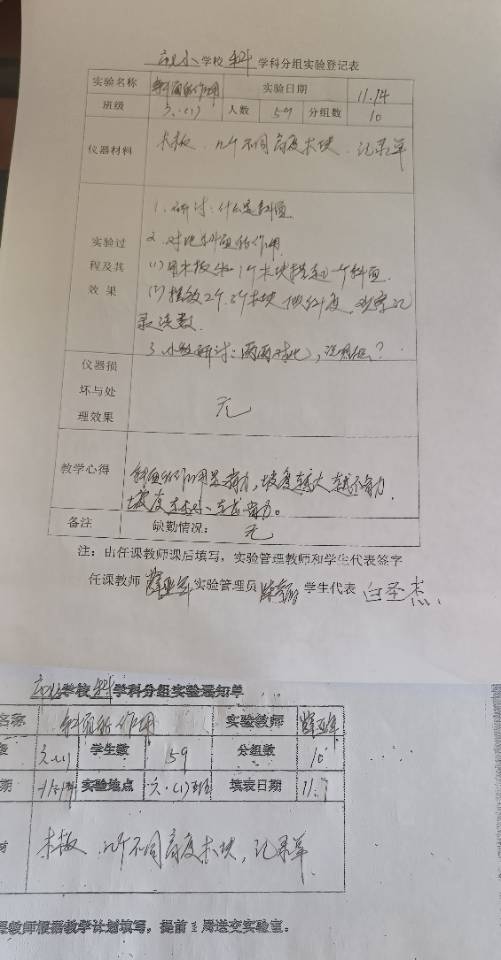 小学校 科 学科分组实验登记表
实验名称 斜面的作用 实验日期 11.14
班级 六.(1) 人数 59 分组数 10
仪器材料 木板、几个不同高度木块、记录单
实验过程及其效果
1.研讨:什么是斜面
2.对比斜面的作用
(1)用木板和1个木块搭起一个斜面.
(2)2个.3个木块
录读数.
3.小组研讨:两两对比,
仪器损坏与处理效果 无
教学心得 斜面的作用是省力,坡度越大越不省力,
坡度越小越省力。
备注 缺勤情况: 无
注:由任课教师课后填写,实验管理教师和学生代表签字
任课教师 实验管理员 学生代表 白圣杰
学校 科 学科分组实验通知单
名称 斜面的作用 实验教师
六.(1) 学生数 59 分组数 10
期 11.14 实验地点 六.(1)班 填表日期 11.7
木板、几个不同高度木块,记录单
教师根据教学计划填写,提前1周送交实验室。